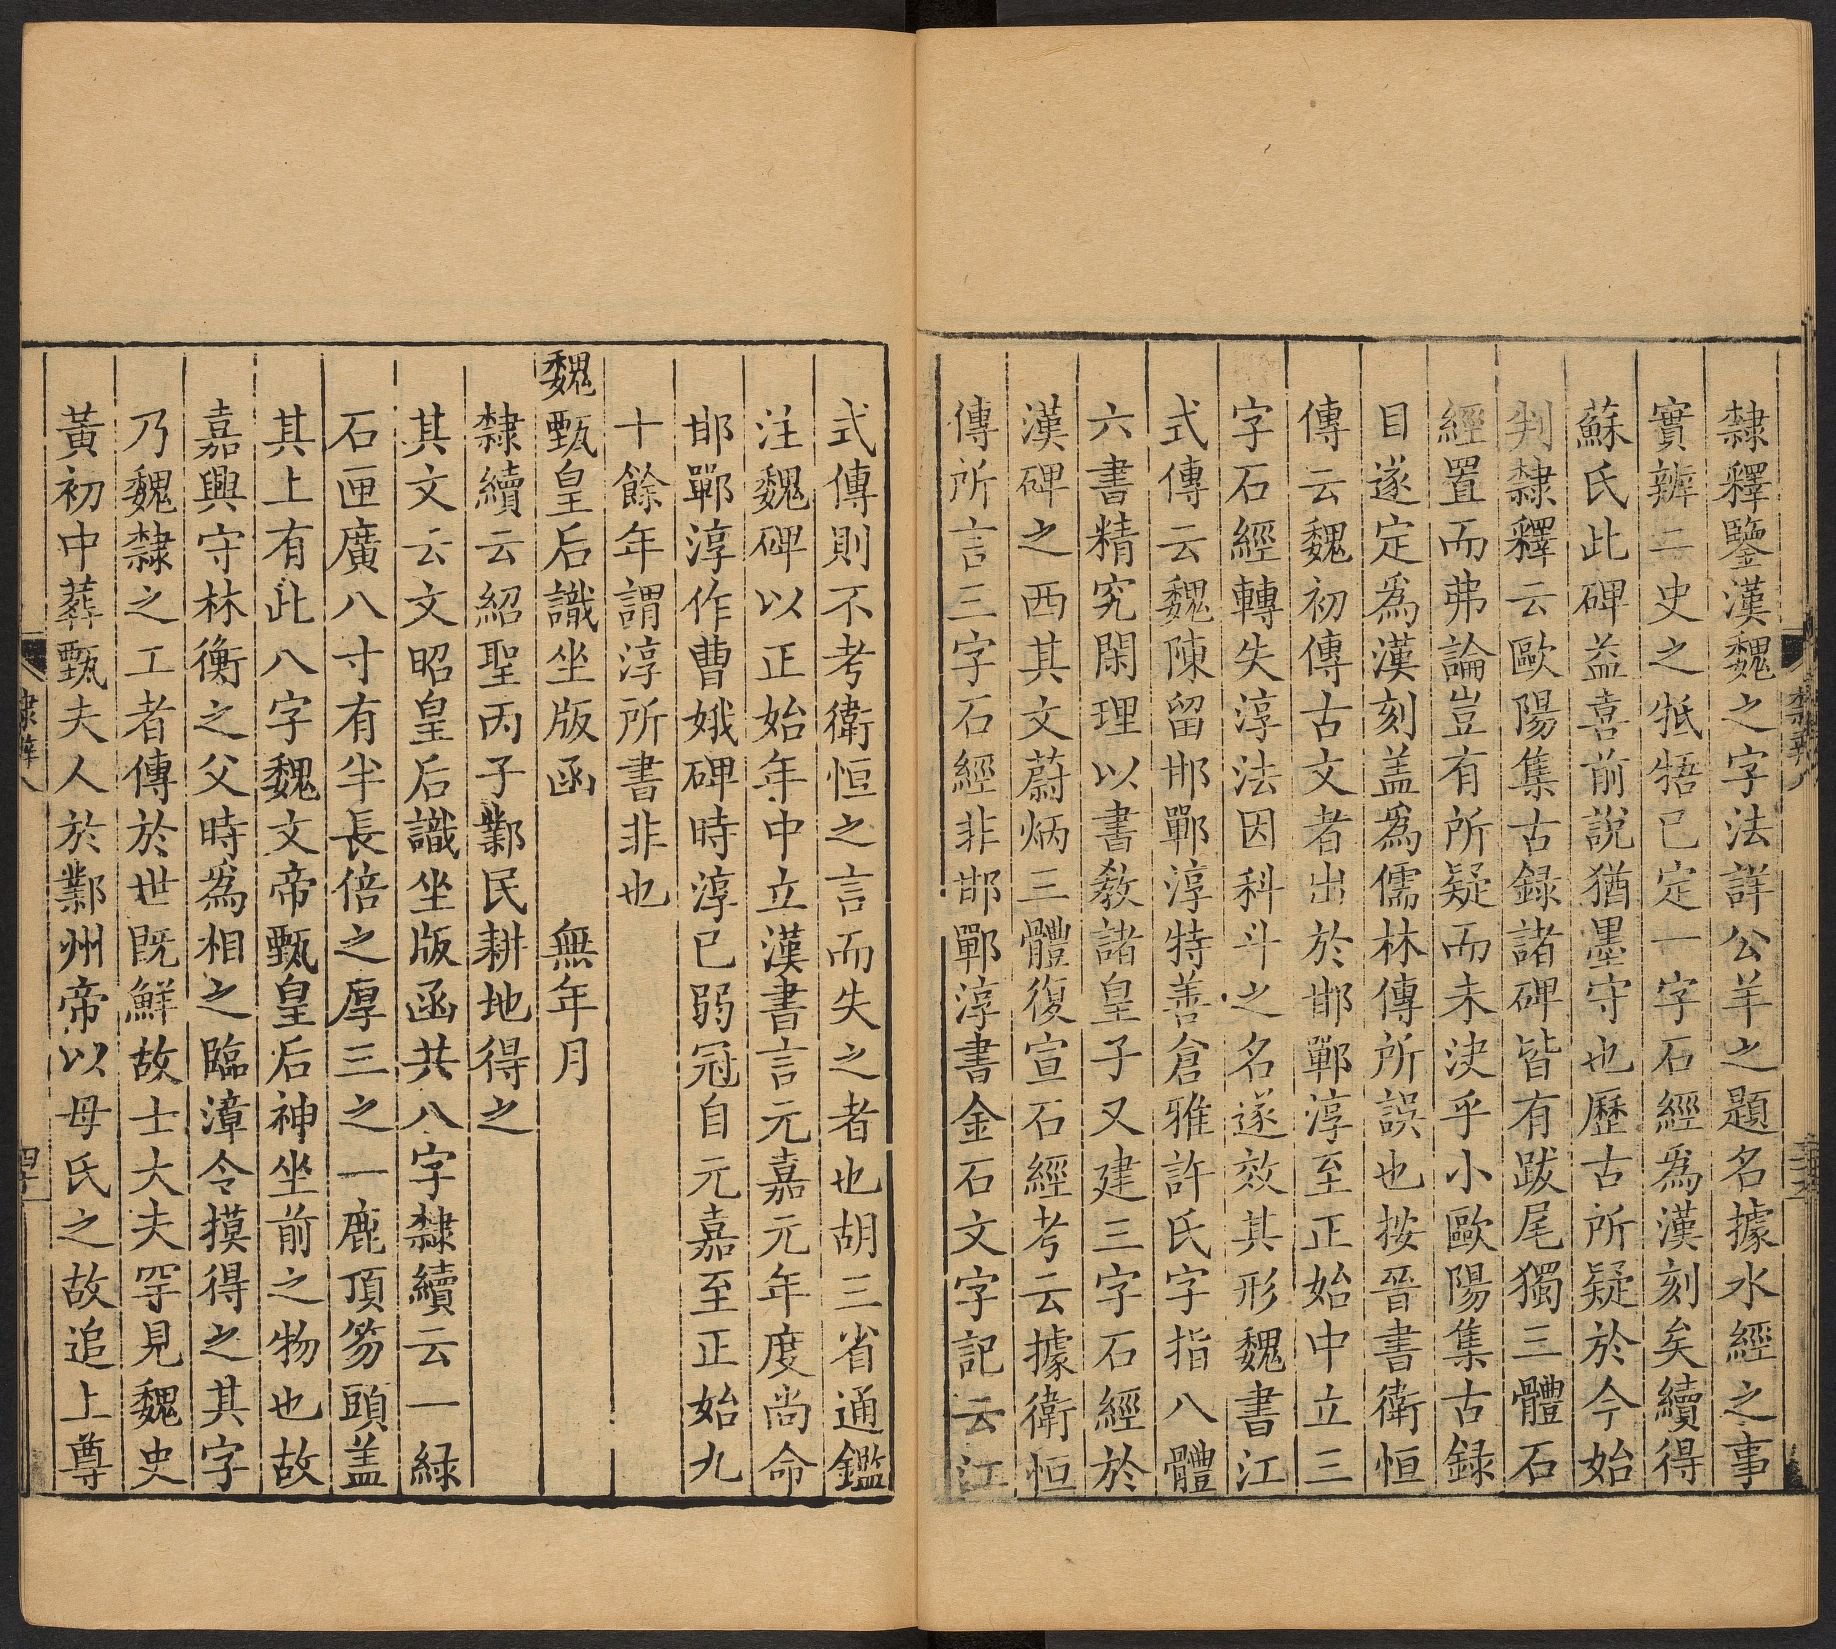 隸釋鑒漢魏之字法詳公羊之題名據水經之事
實辨二史之牴牾已定一字石經爲漢刻矣續得
蘇氏此碑益喜前說猶墨守也歷古所疑於今始
判隸釋云歐陽集古録諸碑皆有跋尾獨三體石
經置而弗論豈有所疑而未決乎小歐陽集古録
目遂定爲漢刻盖爲儒林傳所誤也按晉書衛恒
傳云魏初傳古文者出於邯鄲淳至正始中立三
字石經轉失淳法因科斗之名遂效其形魏書江
式傳云魏陳留邯鄲淳特善倉雅許氏字指八體
六書精究閑理以書敎諸皇子又建三字石經於
漢碑之西其文蔚炳三體復宣石經考云據衛恒
傳所言三字石經非邯鄲淳書金石文字記云江
式傳則不考衛恒之言而失之者也胡三省通鑑
注魏碑以正始年中立漢書言元嘉元年度尚命
邯鄲淳作曹娥碑時淳已弱冠自元嘉至正始九
十餘年謂淳所書非也
魏甄皇后識坐版函 無年月
隸續云紹聖丙子鄴民耕地得之
其文云文昭皇后識坐版函共八字隸續云一緑
石匣廣八寸有半長倍之厚三之一鹿頂笏頭盖
其上有此八字魏文帝甄皇后神坐前之物也故
嘉興守林衡之父時爲相之臨漳令摸得之其字
乃魏隸之工者傳於世旣鮮故士大夫罕見魏史
黃初中葬甄夫人於鄴州帝以母氏之故追上尊